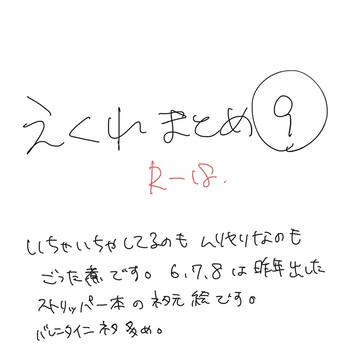 えくれまとめ⑨
R-18.
いちゃいちゃしてるのも ムリヤリなのも
ごった煮です。6.7.8は昨年出した
ストリッパー本のネタ元絵です。
バレンタインネタ多め。